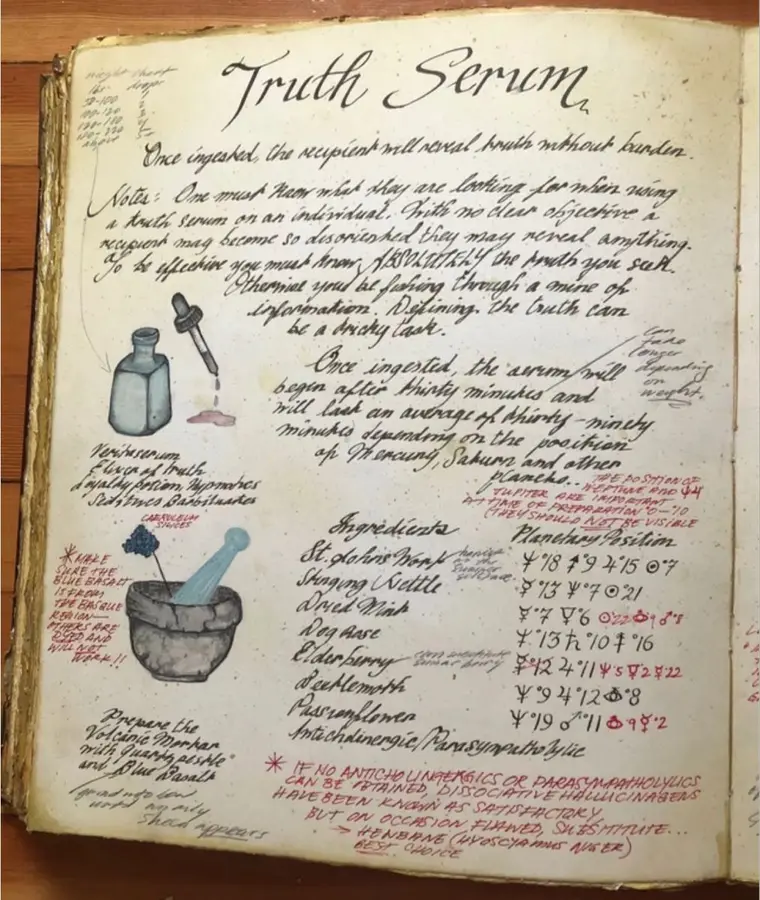 Truth Serum
weight chart
lbs. drops
100-120 3
above
Once ingested, the recipient will reveal truth without burden.
Notes: One must know what they are looking for when using
a truth serum on an individual. With no clear objective a
recipient may become so disoriented they may reveal anything.
To be effective you must know ABSOLUTELY the truth you seek.
Otherwise you'd be fishing through a mine of
information. Defining the truth can
be a tricky task.
can
take
longer
depending
on
weight.
Once ingested, the serum will
begin after thirty minutes and
will last an average of thirty-ninety
minutes depending on the position
of Mercury, Saturn and other
planets..
THE POSITION OF
NEPTUNE AND ♆♃
JUPITER ARE IMPORTANT
AT TIME OF PREPARATION °0-°10
(THEY SHOULD NOT BE VISIBLE
Veritaserum
Elixer of truth
Loyalty potion, Hypnotics
Seditives Barbituates
CAERULEUM
SILICES
* MAKE
SURE THE
BLUE BASALT
IS FROM
THE BASQUE
REGION—
OTHERS ARE
DYED AND
WILL NOT
WORK!!
Prepare the
Volcanic Mortar
with quartz pestle
and Blue Basalt
an oily
sheen appears
Ingredients
St. Johns Wort
on the
summer
solstice
Stinging Nettle
Dried Mint
Dog Rose
Elderberry
can substitute
berry
Beetlemoth
Passionflower
Anticholinergic/Parasympatholytic
Planetary Position
♆°18 °9 ♃°15 ☉°7
☿°13 ♆°7 ☉°21
☿°7 °6 ☉°22 °9 ♂°8
♆°13 ♄°10 °16
☿°12 ♃°11 ♆°5 °2 ☿°22
♆°9 ♃°12 °8
♆°19 ♂°11 °9 °2
* IF NO ANTICHOLINGERGICS OR PARASYMPATHOLYLICS
CAN BE ATAINED, DISSOCIATIVE HALLUCINAGENS
HAVE BEEN KNOWN AS SATISFACTORY,
BUT ON OCCASION FLAWED, SUBSTITUTE...
→ HENBANE (HYOSCYAMUS NIGER)
BEST CHOICE